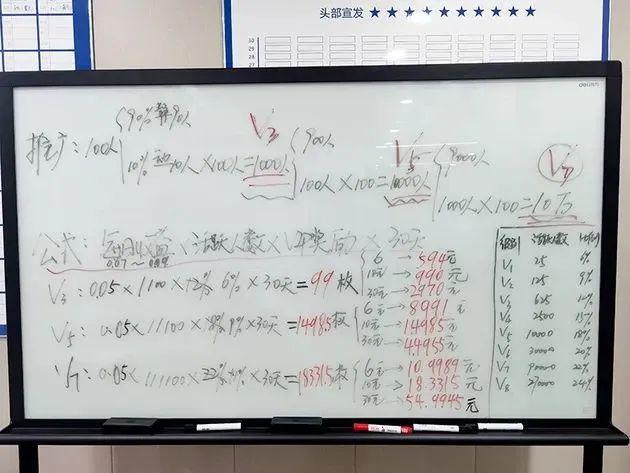 头部宣发 ★★★★★★★★★★
30
29
28
27
deli
{90% 静 90人
推广:100人
10% 动 10人×100人=1000人
V3
{900人
100人×100=10000人
V5
{9000人
1000人×100=10万
V7
公式: ×活跃人数×V平奖励×30天
0.07~0.09
V3:0.05×1100×12% 6%×30天=99枚
{6元→594元
10元→990元
30元→2970元
V5:0.05×11100×18% 9%×30天=1498.5枚
{6元→8991元
10元→14985元
30元→44955元
V7:0.05×111100×22% 11%×30天=18331.5枚
{6元→10.9989元
10元→18.3315元
30元→54.9945元
级别 活跃人数 比例
V1 25 6%
V2 125 9%
V3 625 12%
V4 2500 15%
V5 10000 18%
V6 30000 20%
V7 90000 22%
V8 270000 24%